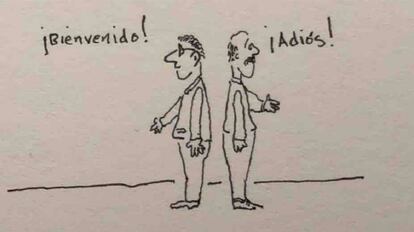 ¡Bienvenido!
¡Adiós!